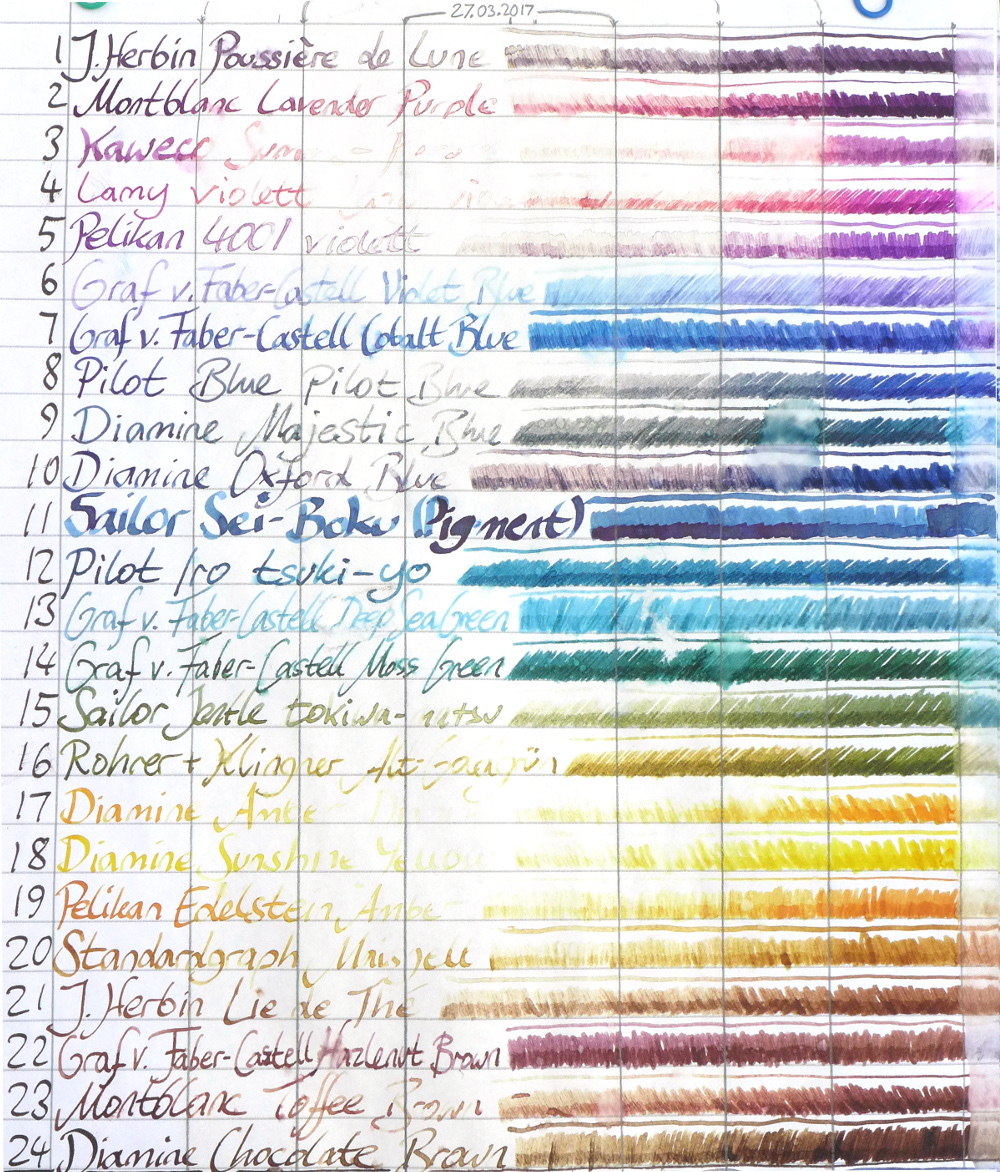 27.03.2017
1 J. Herbin Poussière de Lune
2 Montblanc Lavender Purple
3 Kaweco
4 Lamy violett
5 Pelikan 4001 violett
6 Graf v. Faber-Castell Violet Blue
7 Graf v. Faber-Castell Cobalt Blue
8 Pilot Blue Pilot Blue
9 Diamine Majestic Blue
10 Diamine Oxford Blue
11 Sailor Sei-Boku (Pigment)
12 Pilot Iro tsuki-yo
13 Graf v. Faber-Castell Deep Sea Green
14 Graf v. Faber-Castell Moss Green
15 Sailor Jentle tokiwa-matsu
16 Rohrer + Klingner Alt-Goldgrün
17 Diamine
18 Diamine Sunshine Yellow
19 Pelikan Edelstein Amber
20 Standardgraph
21 J. Herbin Lie de Thé
22 Graf v. Faber-Castell Hazelnut Brown
23 Montblanc Toffee Brown
24 Diamine Chocolate Brown